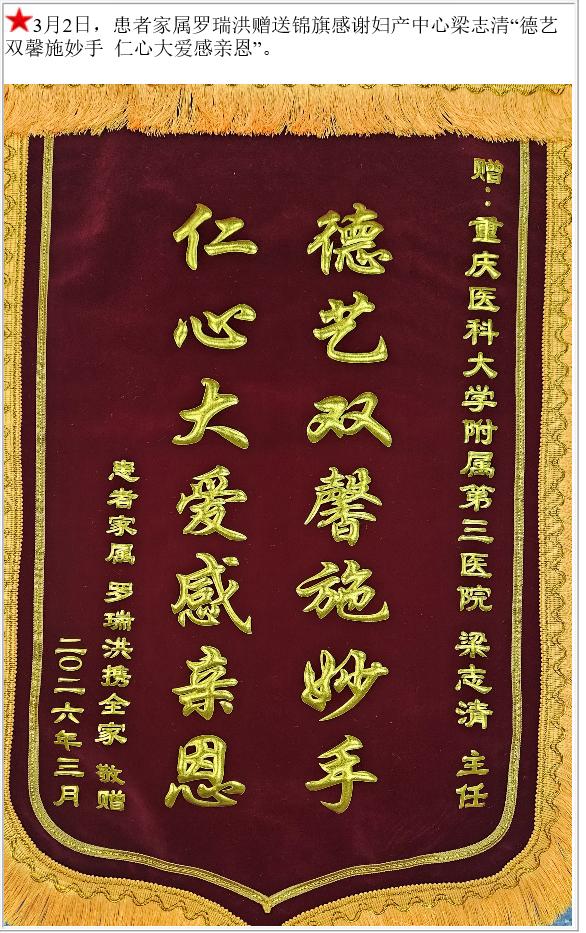 ★3月2日，患者家属罗瑞洪赠送锦旗感谢妇产中心梁志清“德艺
双馨施妙手 仁心大爱感亲恩”。
赠：重庆医科大学附属第三医院 梁志清 主任
德艺双馨施妙手
仁心大爱感亲恩
患者家属 罗瑞洪携全家 敬赠
二〇二六年三月